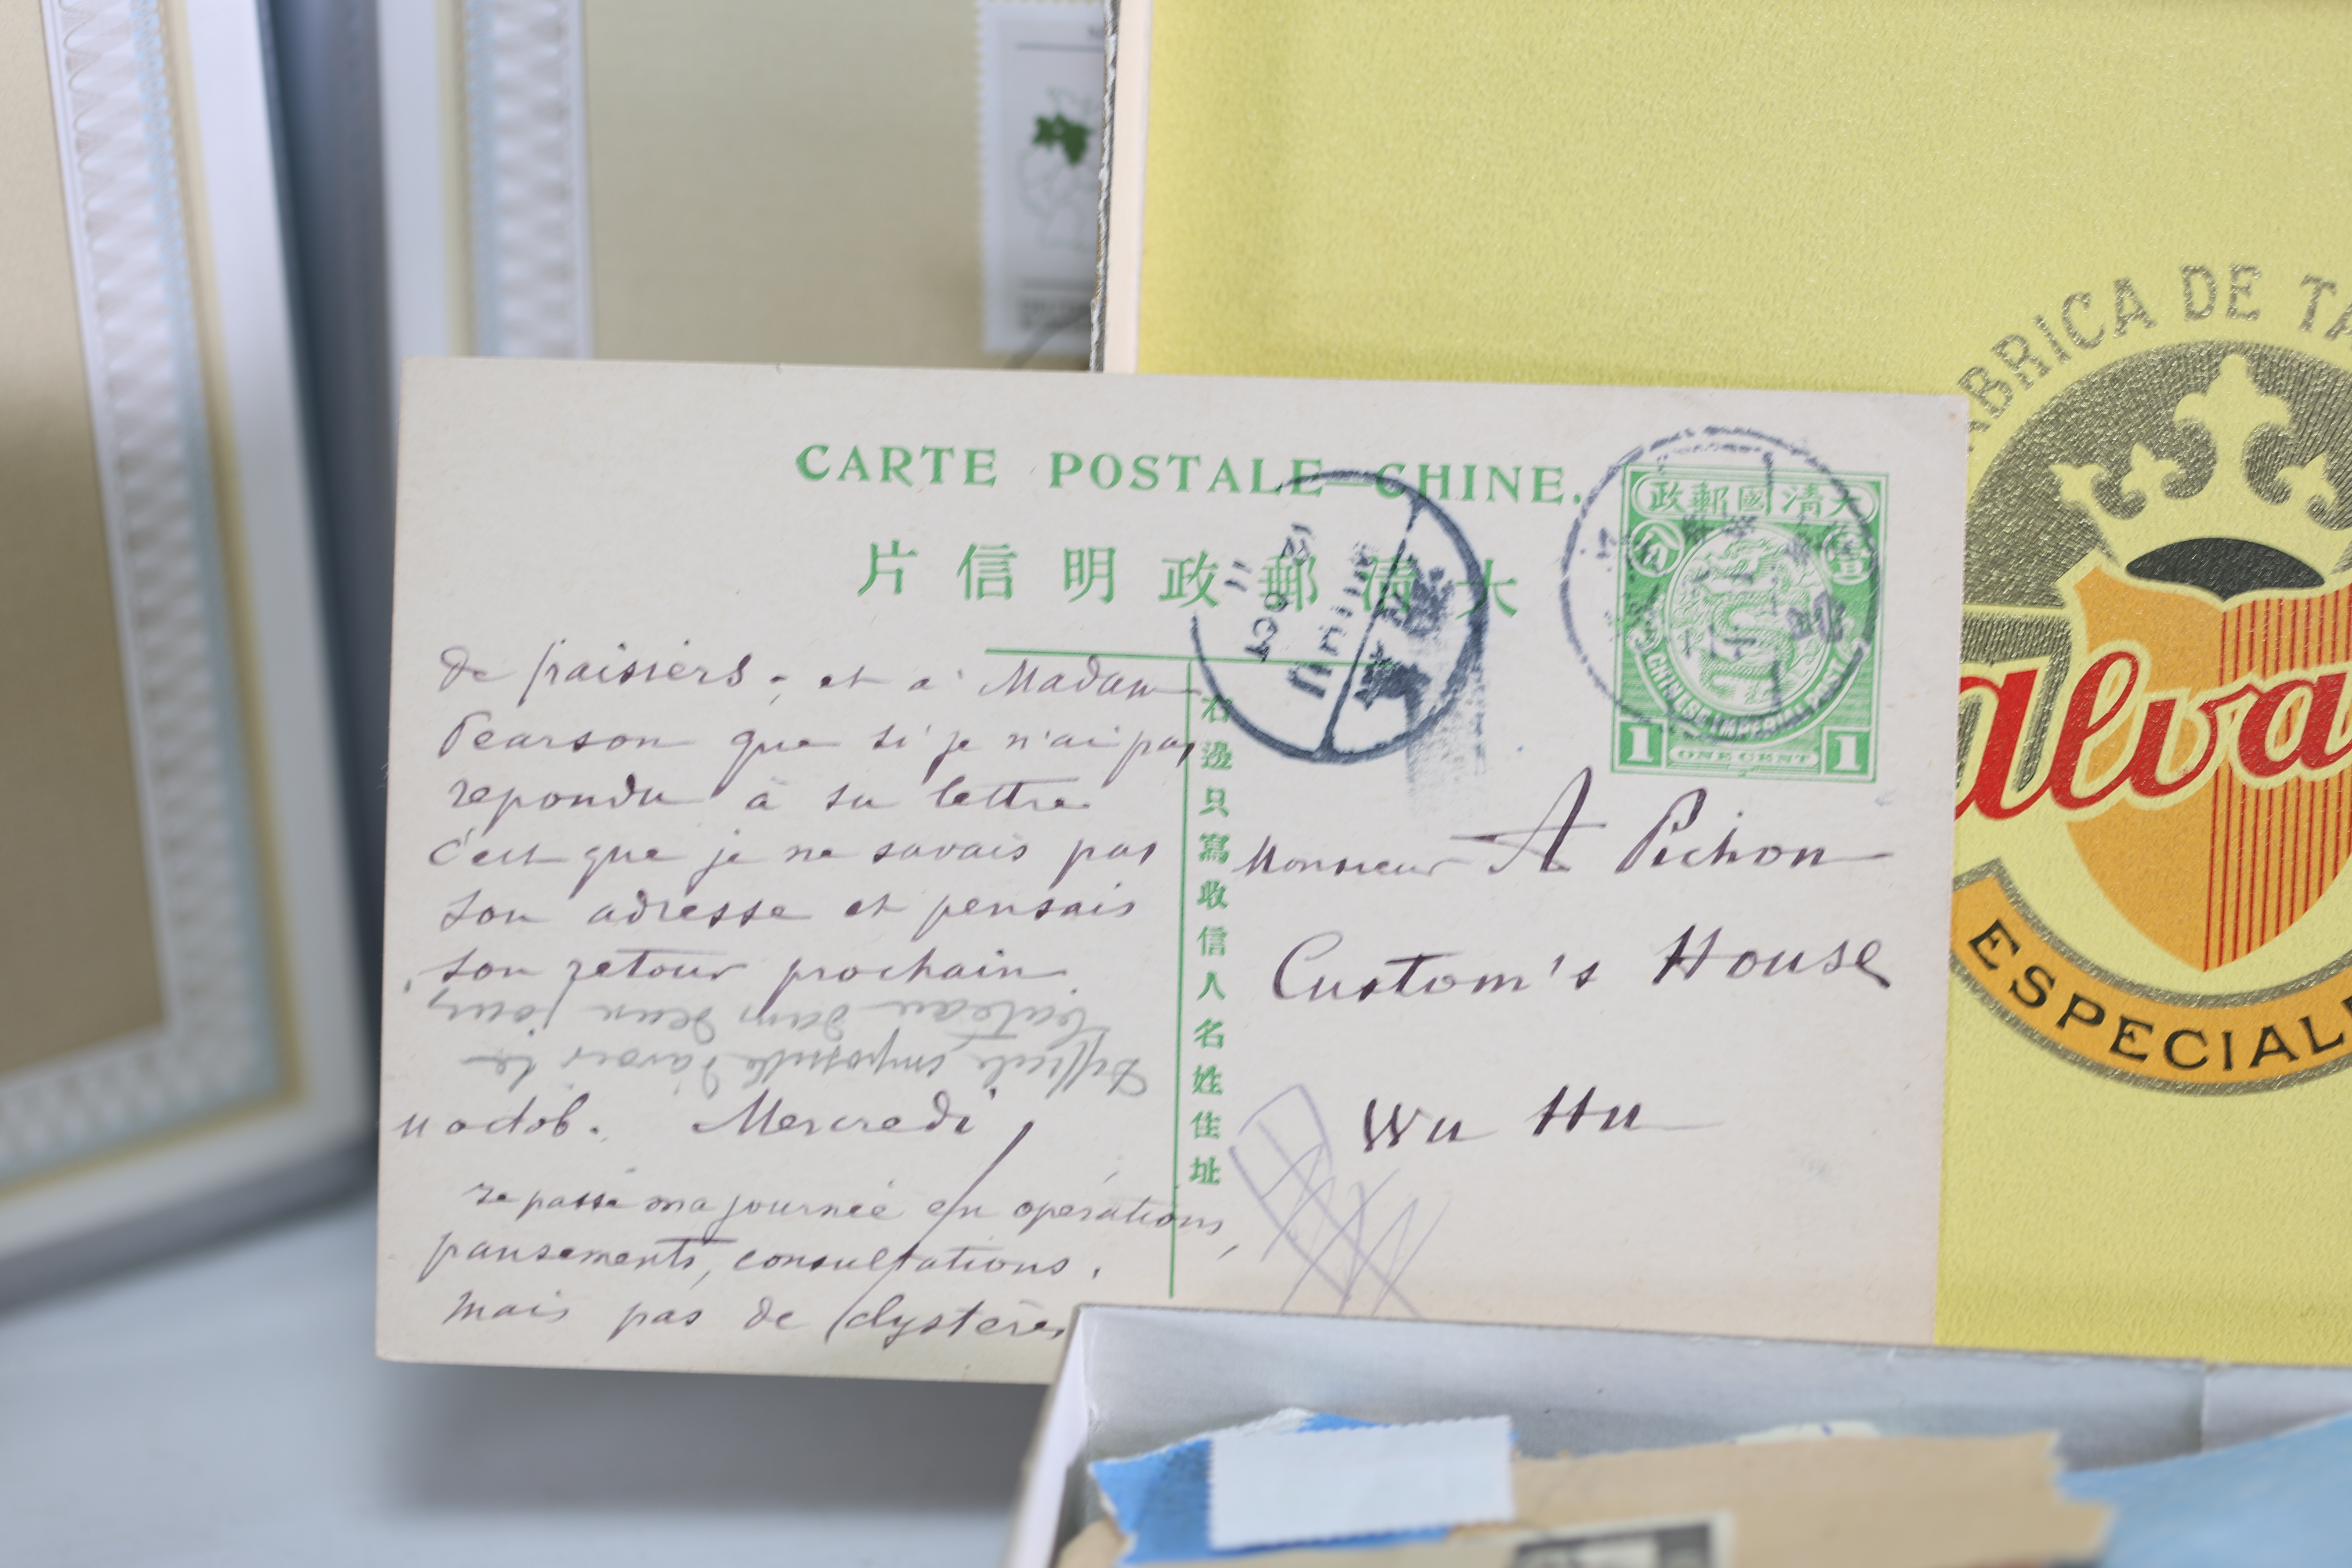 CARTE POSTALE CHINE.
片信明政郵清大
政郵國清大
分
壹
CHINESE IMPERIAL POST
1 ONE CENT 1
11 OCT
de fraisiers; et à Madame
Pearson que si je n'ai pas
repondu à sa lettre
c'est que je ne savais pas
son adresse et pensais
son retour prochain
Difficile, impossible d'avoir le
bateau dans deux jours
11 octob. Mercredi
Je passe ma journée en operations,
pansements, consultations,
mais pas de clystères
右邊只寫收信人名姓住址
Monsieur A Pichon
Custom's House
Wu Hu
ABRICA DE TA
alva
ESPECIAL